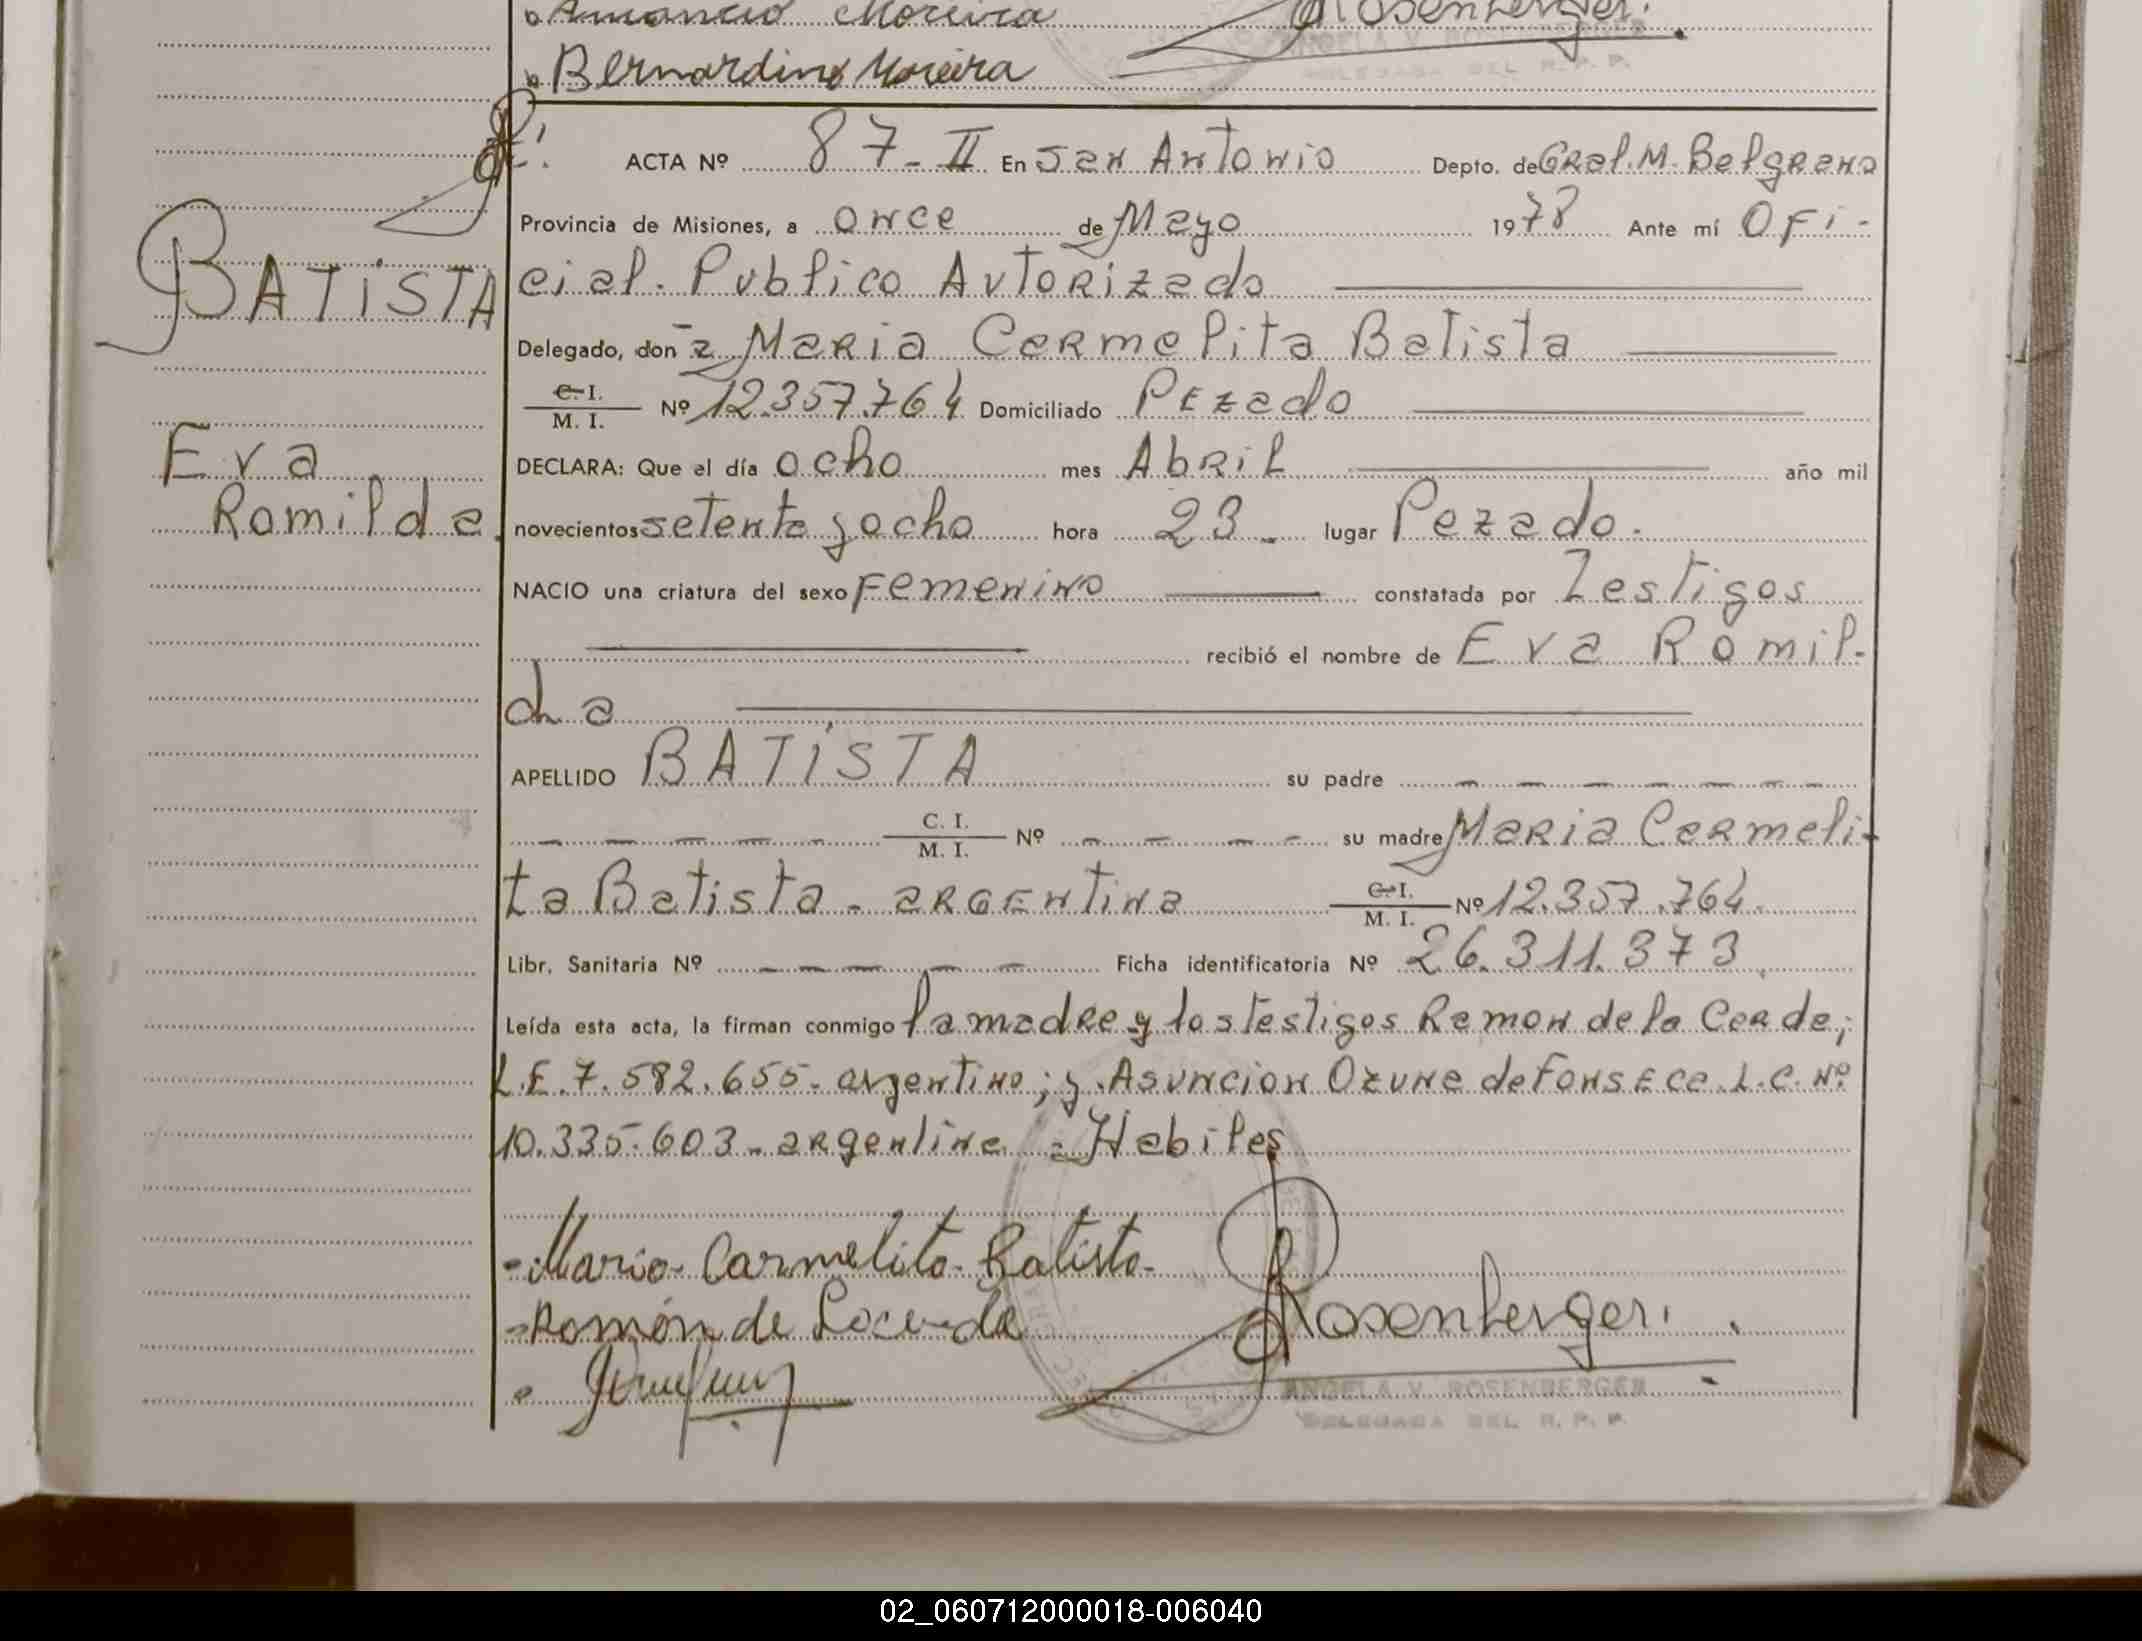 Amancio Moreira Rosenberger.
ANGELA V. ROSENBERGER
Bernardino Moreira DELEGADA DEL R. P. P.
ACTA Nº 87-II En San Antonio Depto. de Gral. M. Belgrano
Provincia de Misiones, a once de Mayo 1978 Ante mí Ofi-
BATISTA cial. Publico Autorizado
Delegado, don-a Maria Carmelita Batista
C. I. / M. I. Nº 12.357.764 Domiciliado Pezado
Eva DECLARA: Que el día ocho mes Abril año mil
Romilda. novecientos setenta y ocho hora 23- lugar Pezado.
NACIO una criatura del sexo Femenino constatada por Testigos
recibió el nombre de Eva Romil-
da
APELLIDO BATISTA su padre - - - - - - -
- - - - - - C. I. / M. I. Nº - - - - su madre Maria Carmeli-
ta Batista - argentina C. I. / M. I. Nº 12.357.764.
Libr. Sanitaria Nº - - - - Ficha identificatoria Nº 26.311.373
Leída esta acta, la firman conmigo la madre y los testigos Ramon de la Cerda;
L.E. 7.582.655- argentino; y Asuncion Ozuna de Fonseca L.C. Nº
10.335.603- argentina - Habiles
-Maria-Carmelita-Batista-
-Ramón de Lacerda Rosenberger.
ANGELA V. ROSENBERGER
DELEGADA DEL R. P. P.
02_060712000018-006040